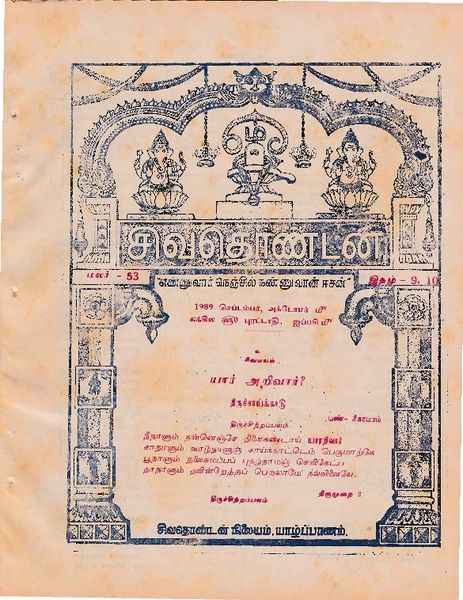 சிவதொண்டன்
மலர் - 53
எண்ணுவார் நெஞ்சில் நண்ணுவான் ஈசன்
இதழ் - 9, 10
1989 செப்டம்பர், அக்டோபர் மீ
சுக்கில ஹு புரட்டாதி, ஐப்பசி மீ
உ
சிவமயம்
யார் அறிவார்?
திருச்சாய்க்காடு
பண் - சீகாமரம்
திருச்சிற்றம்பலம்
நீநாளும் நன்னெஞ்சே நினைகண்டாய் யாரறிவார்
சாநாளும் வாழ்நாளுஞ் சாய்க்காட்டெம் பெருமாற்கே
பூநாளும் தலைசுமப்பப் புகழ்நாமஞ் செவிகேட்ப
நாநாளும் நவின்றேத்தப் பெறலாமே நல்வினையே.
திருச்சிற்றம்பலம்
திருமுறை 2
சிவதொண்டன் நிலையம், யாழ்ப்பாணம்.